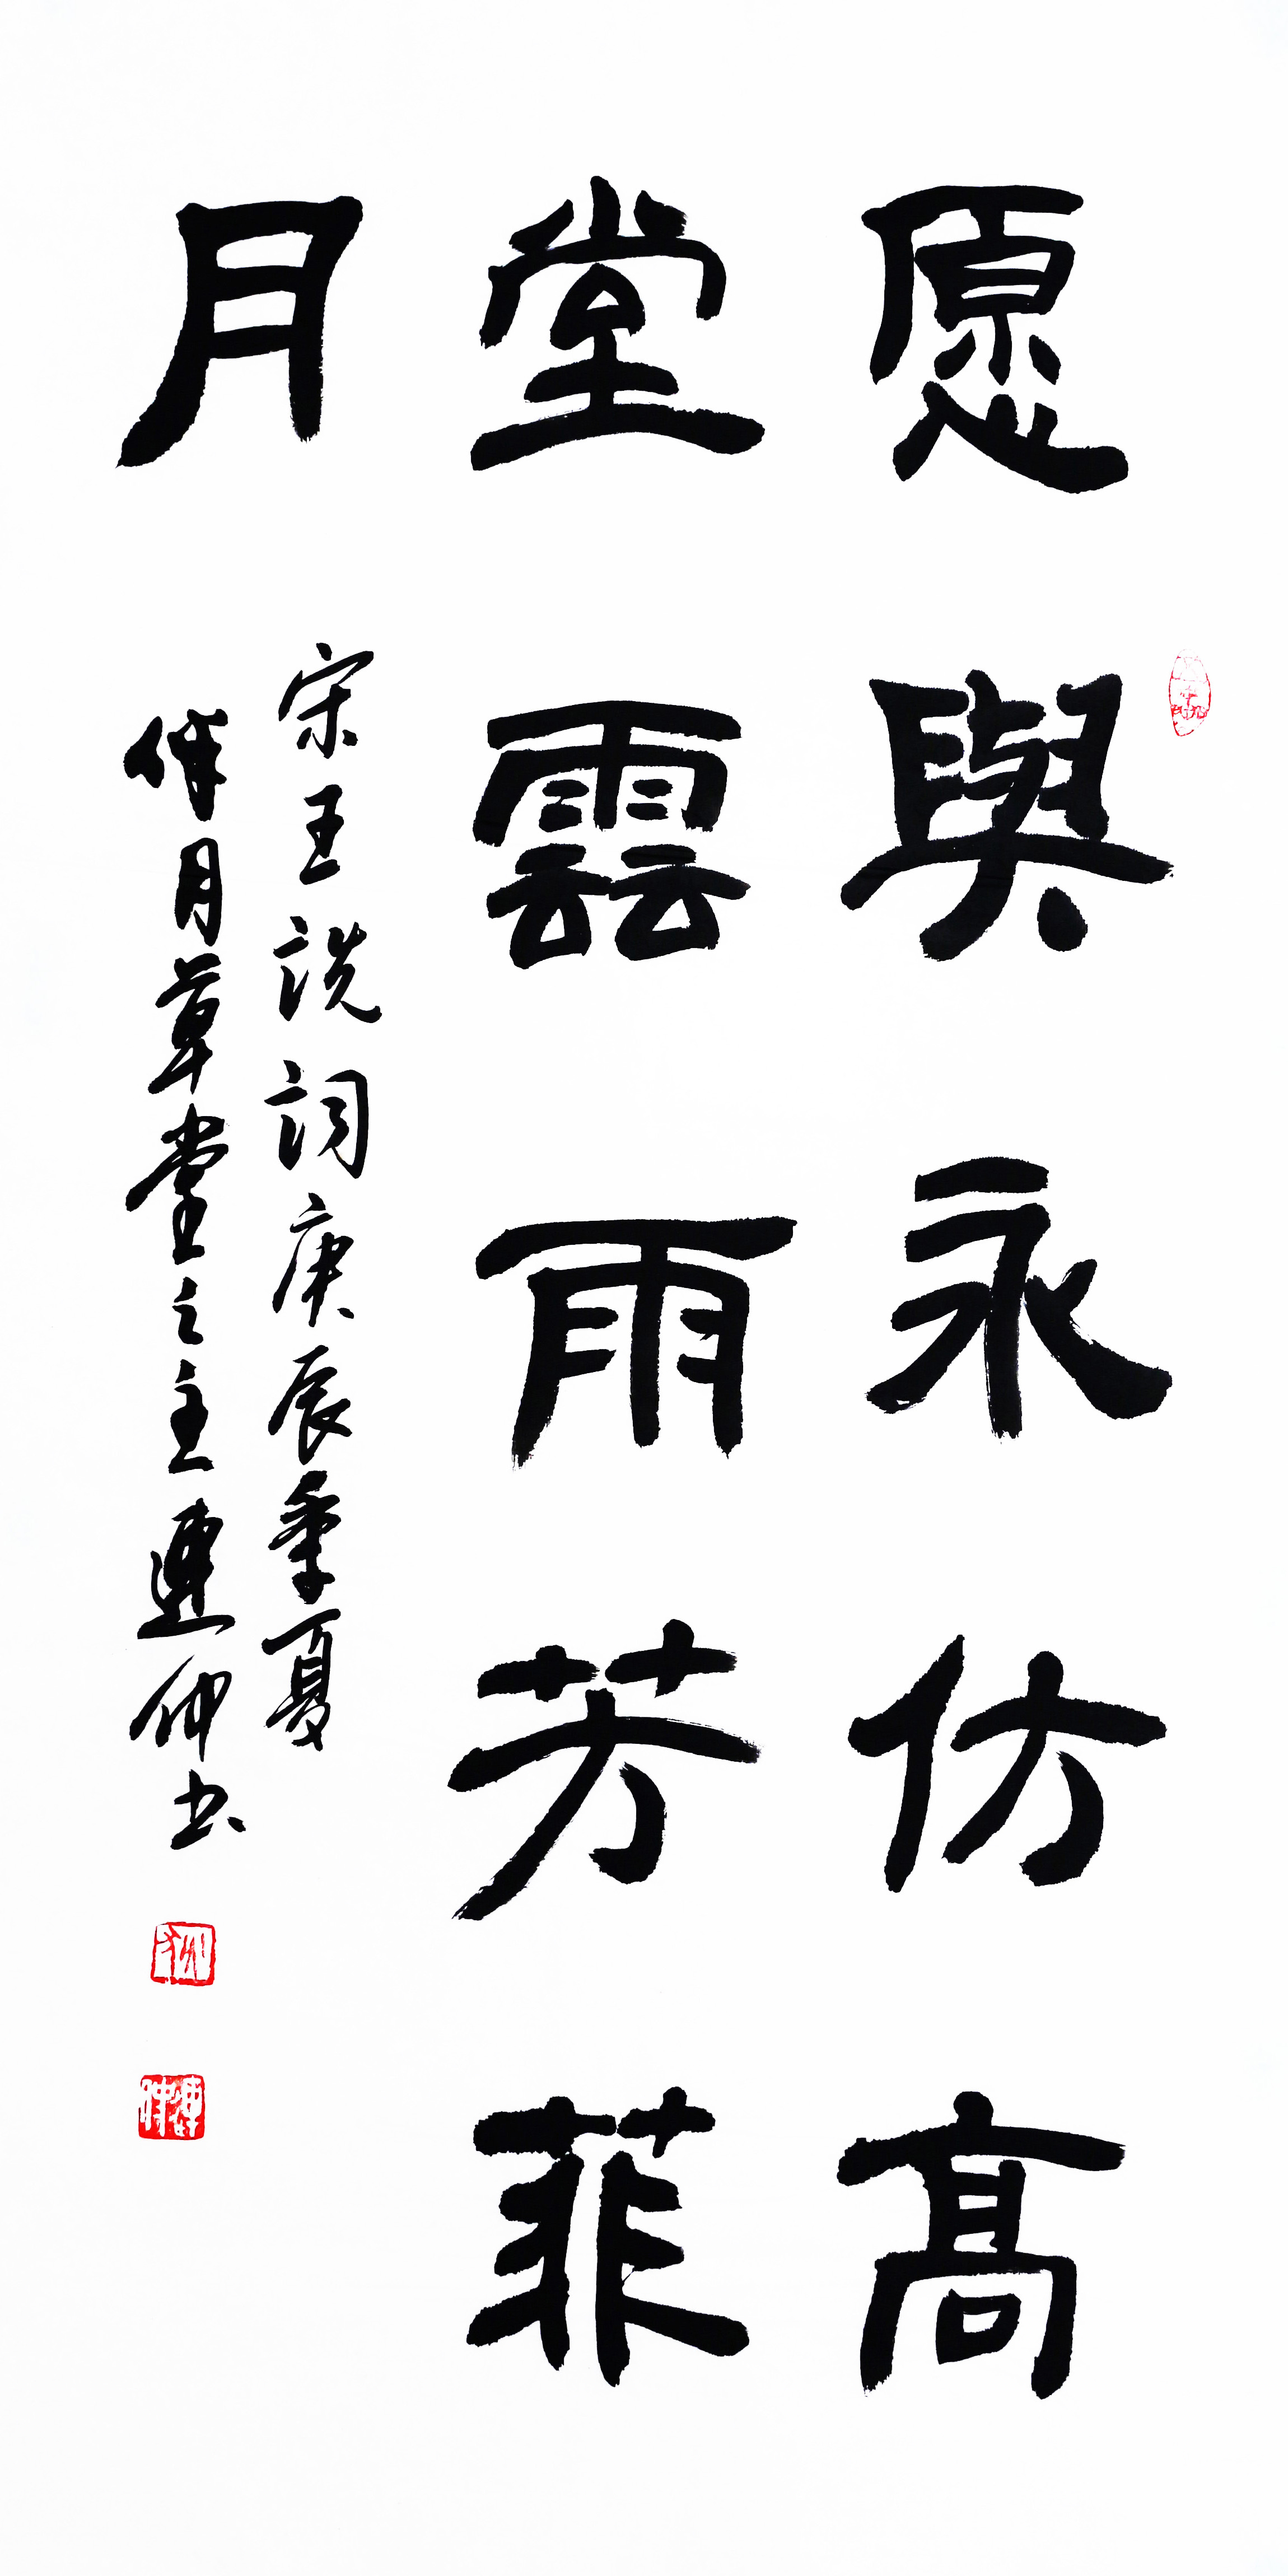 愿與永仿高
堂雲雨芳菲
月
宋王詵詞庚辰季夏
伴月草堂之主連仲书